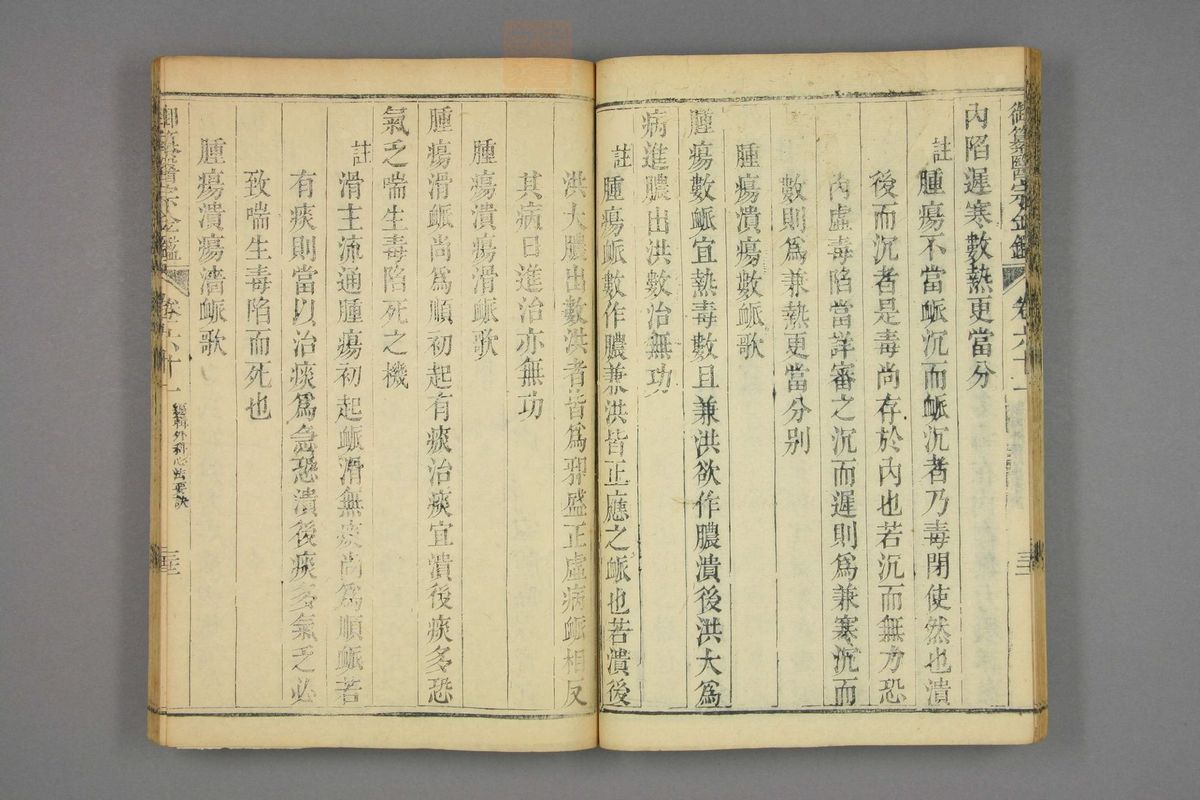 御纂醫宗金鑑 卷六十一
內陷遲寒數熱更當分
註腫瘍不當䘑沉而䘑沉者乃毒閉使然也潰
後而沉者是毒尚存於內也若沉而無力恐
內虛毒陷當詳審之沉而遲則爲兼寒沉而
數則爲兼熱更當分别
腫瘍潰瘍數䘑歌
腫瘍數䘑宜熱毒數且兼洪欲作膿潰後洪大爲
病進膿出洪數治無功
註腫瘍䘑數作膿兼洪皆正應之䘑也若潰後
洪大膿出數洪者皆爲邪盛正虛病䘑相反
其病日進治亦無功
腫瘍潰瘍滑䘑歌
腫瘍滑䘑尚爲順初起有痰治痰宜潰後痰多恐
氣乏喘生毒陷死之機
註滑主流通腫瘍初起䘑滑無痰尚爲順䘑若
有痰則當以治痰爲急恐潰後痰多氣乏必
致喘生毒陷而死也
腫瘍潰瘍濇䘑歌
御纂醫宗金鑑 卷六十一 編輯外科心法要訣